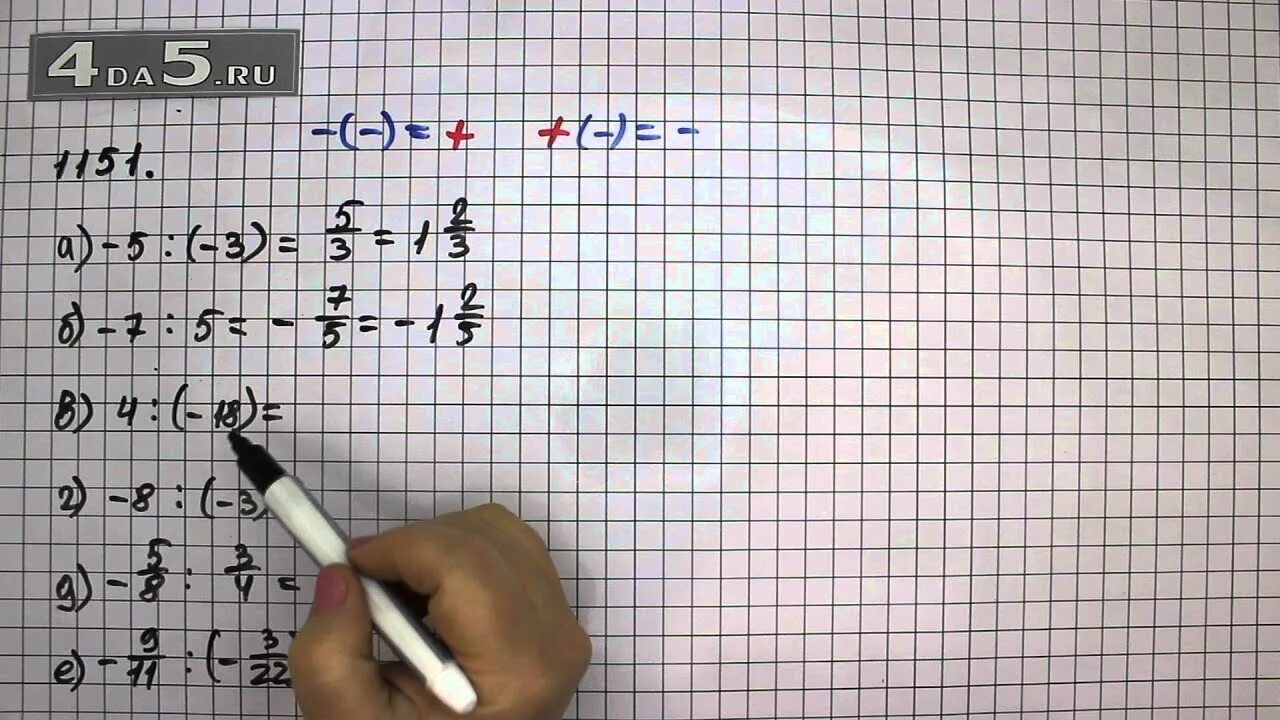 4DA5.RU
-(-) = +    +(-) = -
1151.
а) -5 : (-3) = 5/3 = 1 2/3
б) -7 : 5 = - 7/5 = -1 2/5
в) 4 : (-18) =
г) -8 : (-3)
д) - 5/8 : 3/4 =
е) - 9/11 : (- 3/22